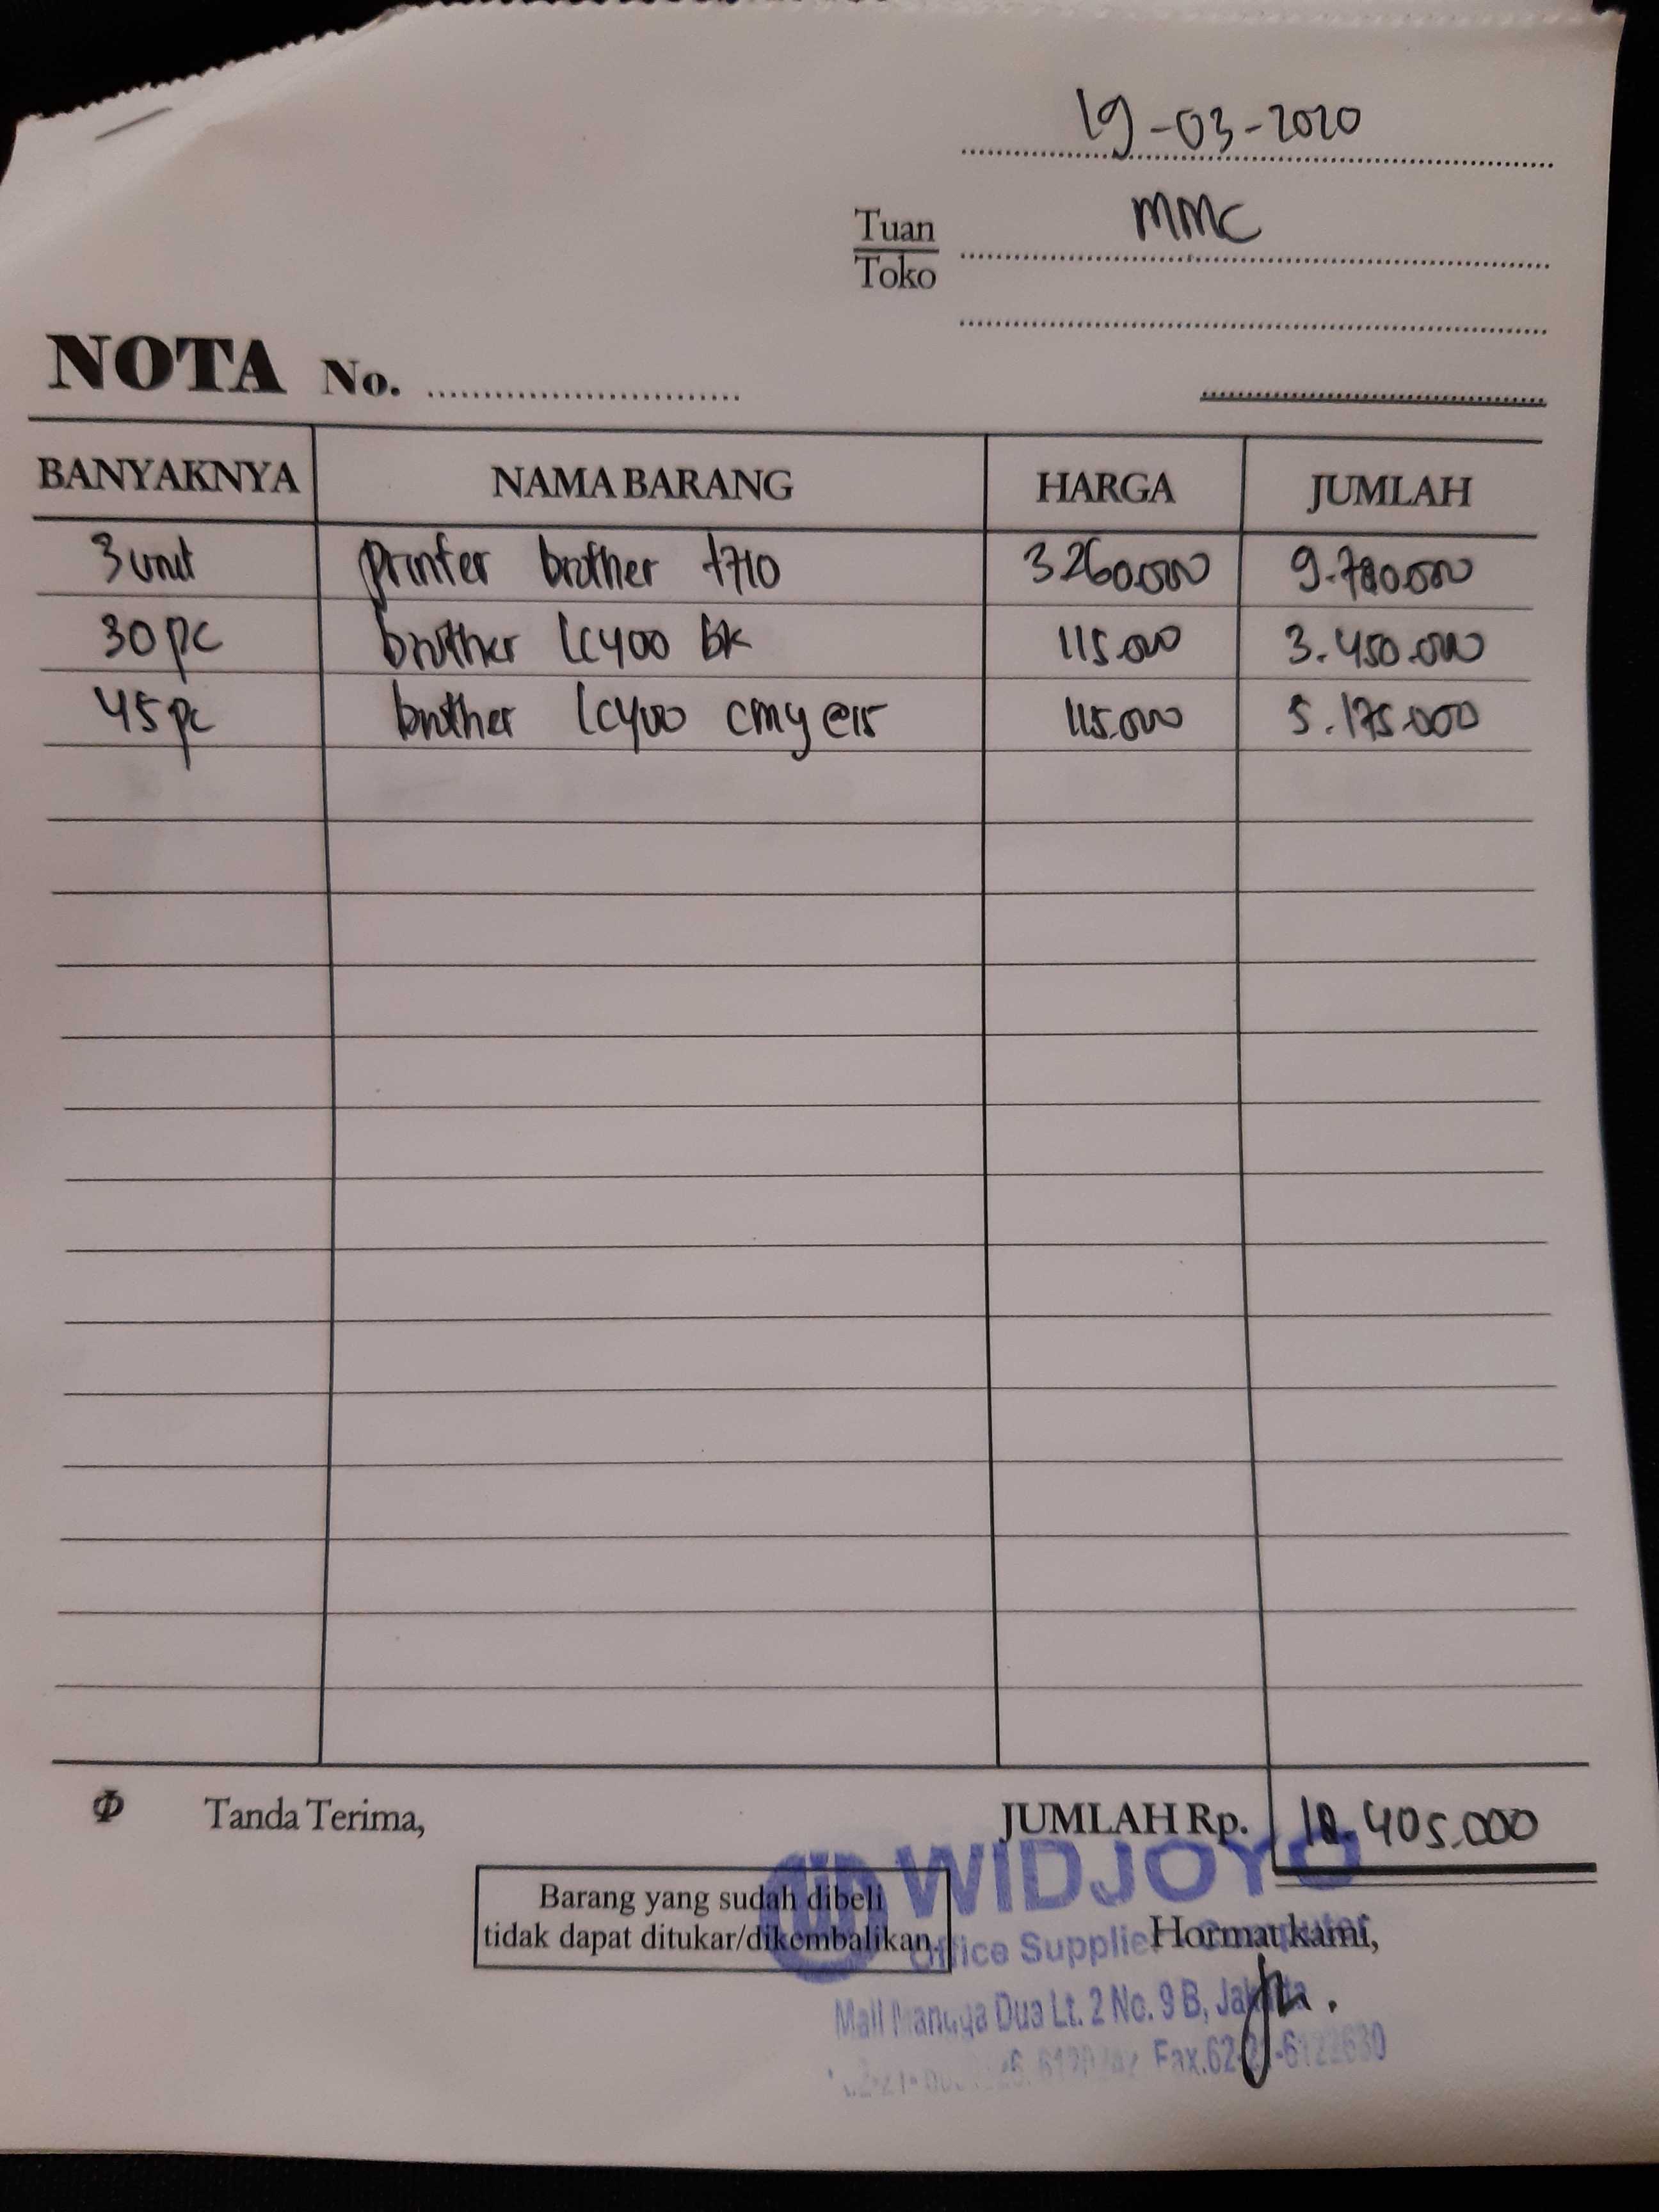 19-03-2020
Tuan
Toko
MMC
NOTA No.
BANYAKNYA NAMA BARANG HARGA JUMLAH
3 unit printer brother t710 3260.000 9.780.000
30 pc brother lc400 bk 115.000 3.450.000
45 pc brother lc400 cmy @15 115.000 5.175.000
Tanda Terima,
JUMLAH Rp. 18.405.000
Barang yang sudah dibeli
tidak dapat ditukar/dikembalikan.
WIDJOYO
Office Supplies Computer
Hormat kami,
Mall Mangga Dua Lt. 2 No. 9 B, Jakarta
Fax.62-21-6122630